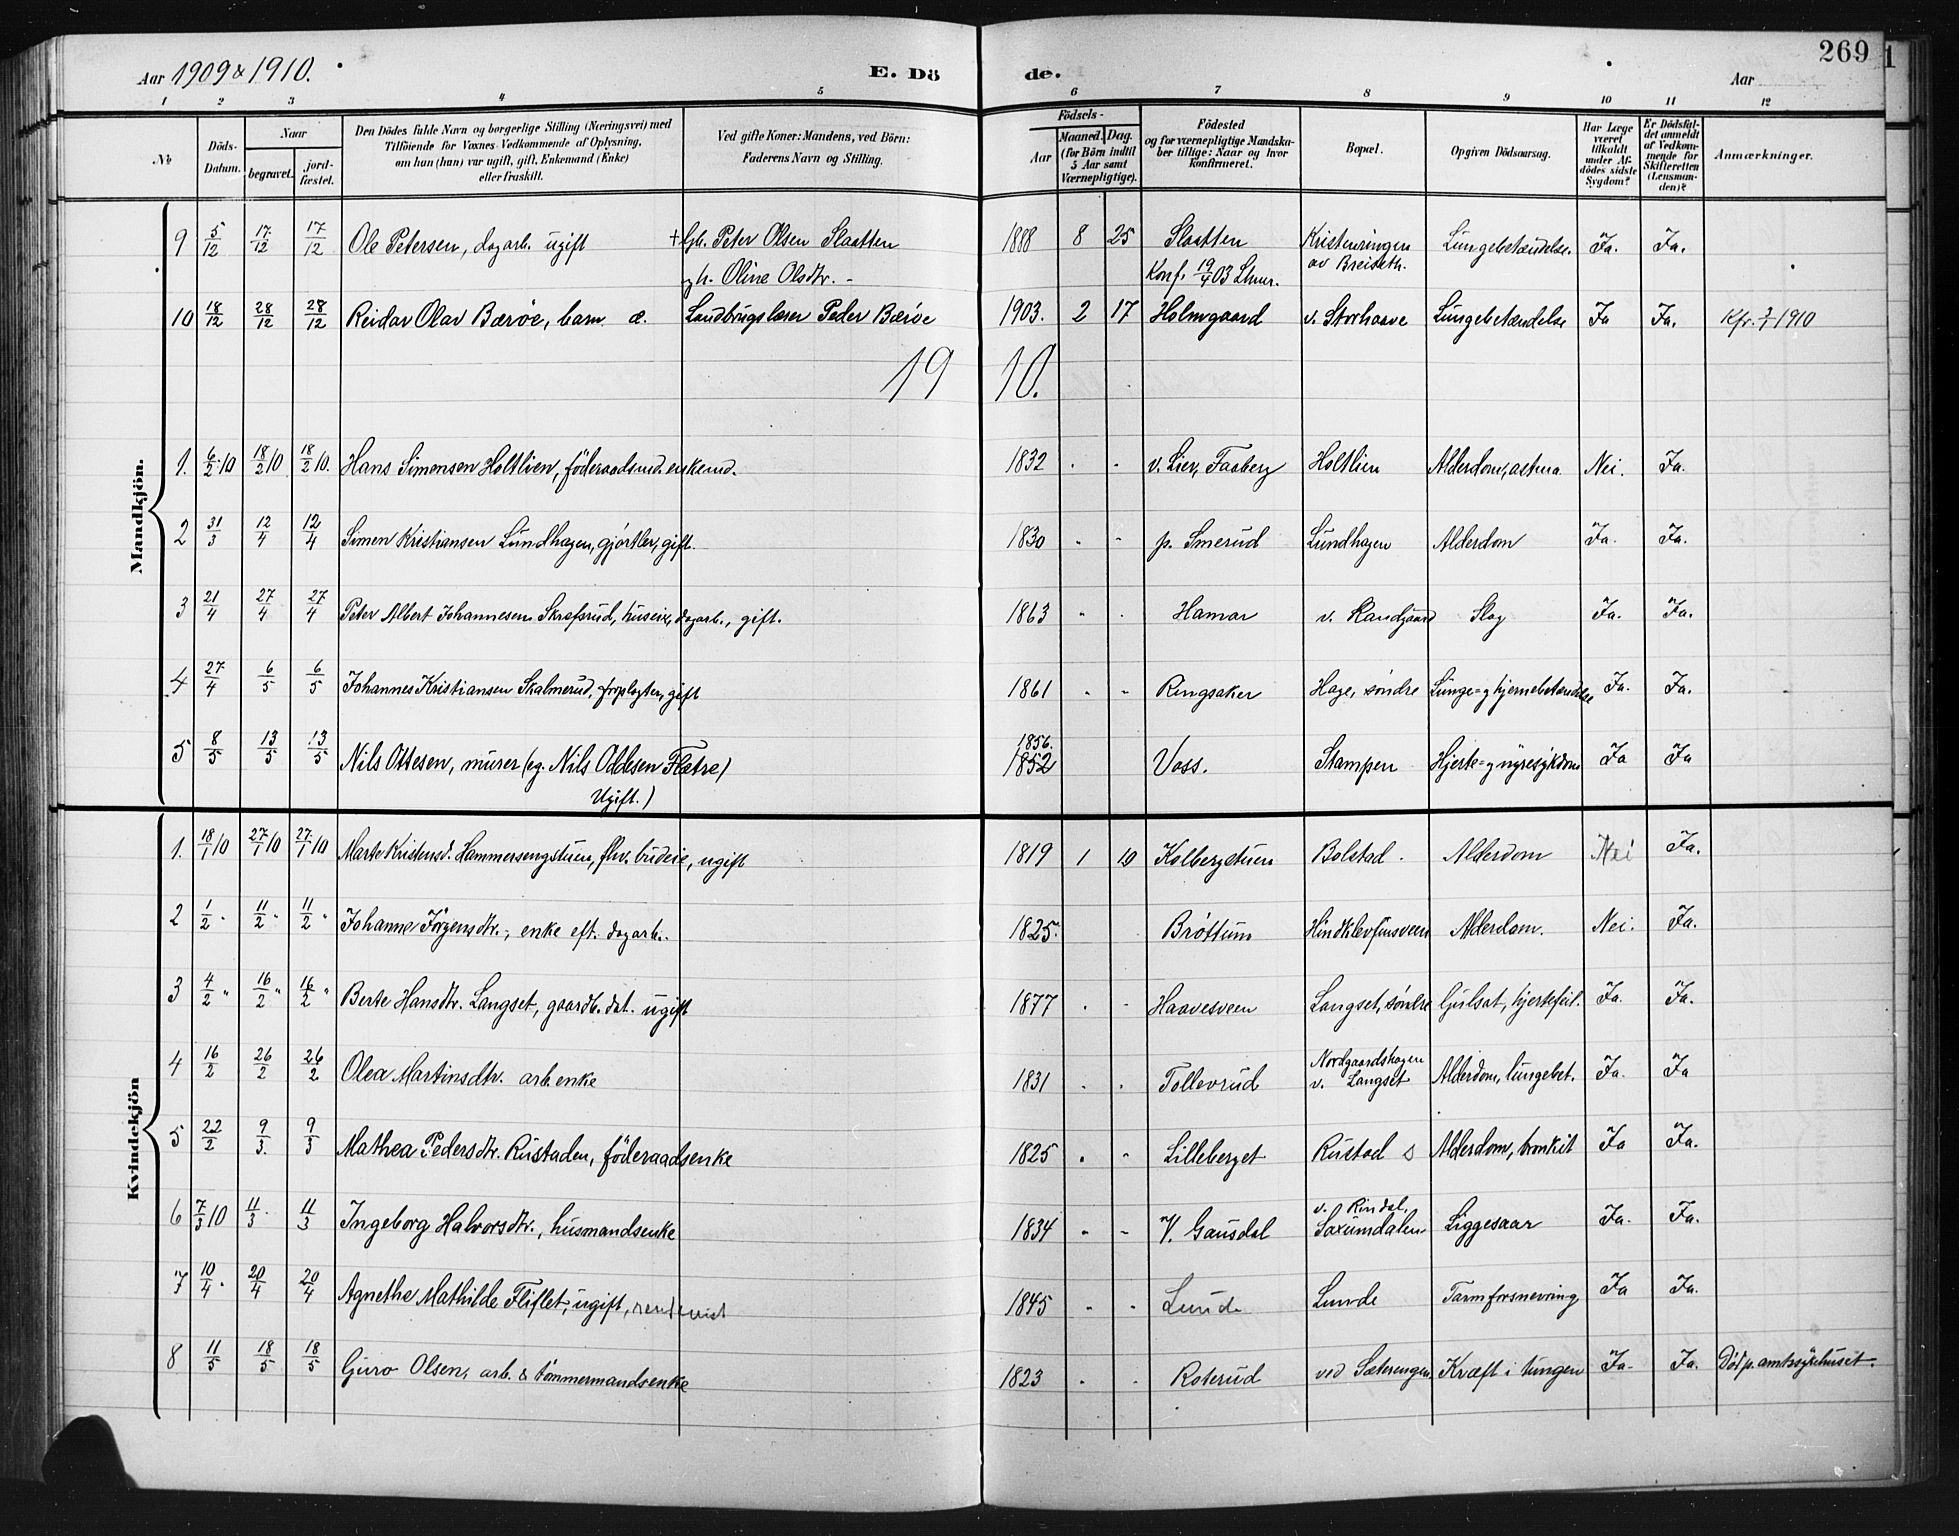 269
Aar 1909 & 1910.
E. Dö de.
Aar
1 2 3 4 5 6 7 8 9 10 11 12
No
Döds-Datum.
Naar
begravet.
jord-fæstet.
Den Dödes fulde Navn og borgerlige Stilling (Næringsvei) med
Tilföiende for Voxnes Vedkommende af Oplysning,
om han (hun) var ugift, gift, Enkemand (Enke)
eller fraskilt.
Ved gifte Koner: Mandens, ved Börn:
Faderens Navn og Stilling.
Födsels-
Aar
Maaned. Dag.
(for Börn indtil
5 Aar samt
Værnepligtige).
Födested
og for værnepligtige Mandska-
ber tillige: Naar og hvor
Konfirmeret.
Bopæl.
Opgiven Dödsaarsag.
Har Læge
været
tilkaldt
under Af-
dödes sidste
Sygdom?
Er Dödsfal-
det anmeldt
af Vedkom-
mende for
Skifteretten
(Lensman-
den)?
Anmærkninger.
9 5/12 17/12 17/12 Ole Petersen, dagarb. ugift + Gb. Peter Olsen Slaatten 1888 8 25 Slaatten Kristenringen Lungebetændelse. Ja. Ja.
gh. Oline Olsdtr. - Konf. 19/4 03 Lhmr. av Breiseth.
10 18/12 28/12 28/12 Reidar Olav Bærøe, barn æ. Landbrugslærer Peder Bærøe 1903. 2 17 Holmgaard v. Storhaave Lungebetændelse Ja Ja. Kfr. 3/1 1910
19 10.
Mandkjön.
1. 6/2 10 18/2 10 18/2 10. Hans Simensen Holtlien, föderaadsmd. enkemd. 1832 " " v. Lier, Faaberg Holtlien Alderdom, astma Nei. Ja.
2 31/3 12/4 12/4 Simen Kristiansen Lundhagen, gjörtler, gift. 1830 " " p. Smerud Lundhagen Alderdom Ja. Ja.
3 21/4 27/4 27/4 Peter Albert Johannesen Skrefsrud, huseier, dagarb., gift. 1863 " " Hamar v. Randgaard Slag Ja. Ja.
4 27/4 6/5 6/5 Johannes Kristiansen Skalmerud, forplogter, gift 1861 " " Ringsaker Hage, söndre Lunge- og hjernebetændelse Ja. Ja.
5 8/5 13/5 13/5 Nils Ottesen, murer (eg. Nils Oddesen Flætre) 1856. 1852 Voss. Stampen Hjerte- og nyresykdom Ja Ja
Ugift.)
Kvindekjön
1. 18/1 10 27/1 10 27/1 10 Marte Kristensd. Hammersengstuen, fhv. budeie, ugift 1819 1 10 Kolbergstuen Bolstad. Alderdom Nei Ja.
2 1/2 " 11/2 " 11/2 " Johanne Jörgensdtr., enke eft. dagarb. 1825. Bröttum Hindklevfinsveen Alderdom. Nei. Ja.
3 4/2 " 16/2 " 16/2 " Berte Hansdtr. Langset, gaardb. dat. ugift 1877 " " Haavesveen Langset, söndre Gulsot, hjertefeil. Ja. Ja.
4 16/2 26/2 26/2 Olea Martinsdtr. arb. enke 1831 " " Tollevrud Nordgaardshagen v. Langset Alderdom, lungebet. Ja. Ja
5 22/2 9/3. 9/3 Mathea Pedersdtr. Rustaden, föderaadsenke 1825 " " Lilleberget Rustad s Alderdom, bronkit Ja Ja.
6 7/3 10 11/3 11/3 Ingeborg Halvorsdtr., husmandsenke 1834 " " V. Gausdal v. Rindal, Saxumdalen Liggesaar Ja. Ja.
7 10/4 20/4 20/4 Agnethe Mathilde Fliflet, ugift, rentenist 1845 " " Lunde Lunde Tarmforsnevring Ja Ja.
8 11/5 18/5 18/5 Guro Olsen, arb. & tömmermandsenke 1823 " " Roterud ved Sæterengen Kræft i tungen Ja. Ja. Död p. amtssykehuset.